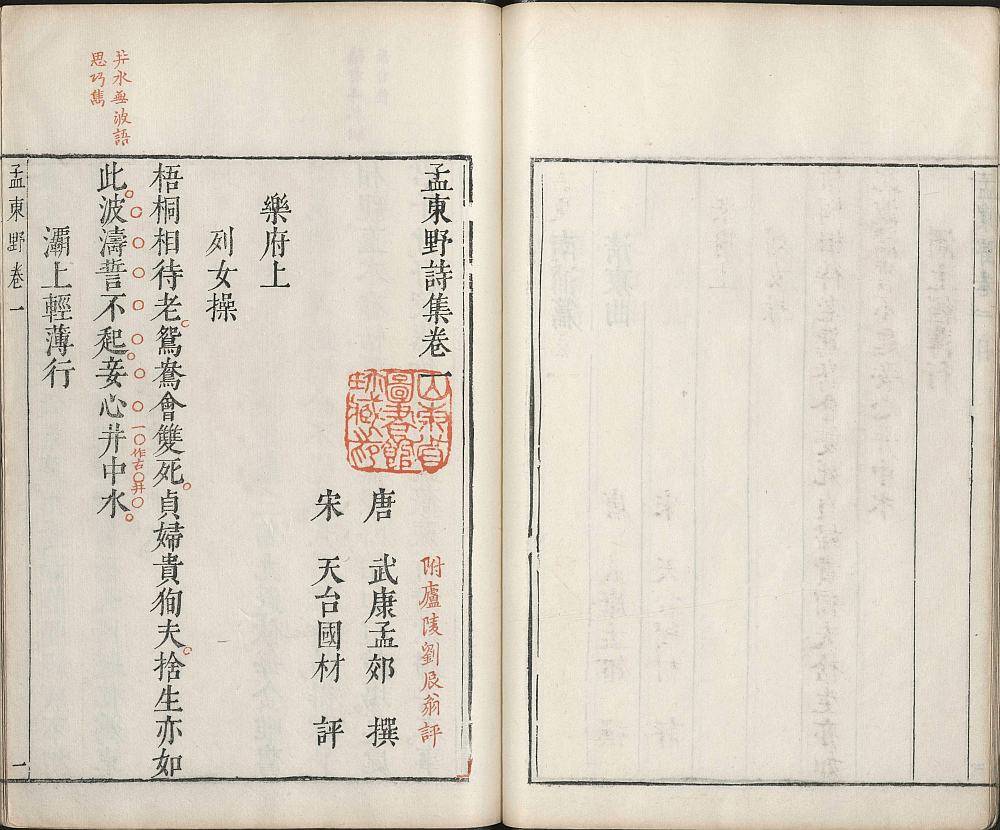 孟東野詩集卷一
附廬陵劉辰翁評
山東省
圖書館
珍藏印
唐 武康孟郊 撰
宋 天台國材 評
樂府上
列女操
梧桐相待老鴛鴦會雙死貞婦貴狥夫捨生亦如
此波濤誓不起妾心井中水
一作古井
灞上輕薄行
井水無波語
思巧雋
孟東野卷一
一